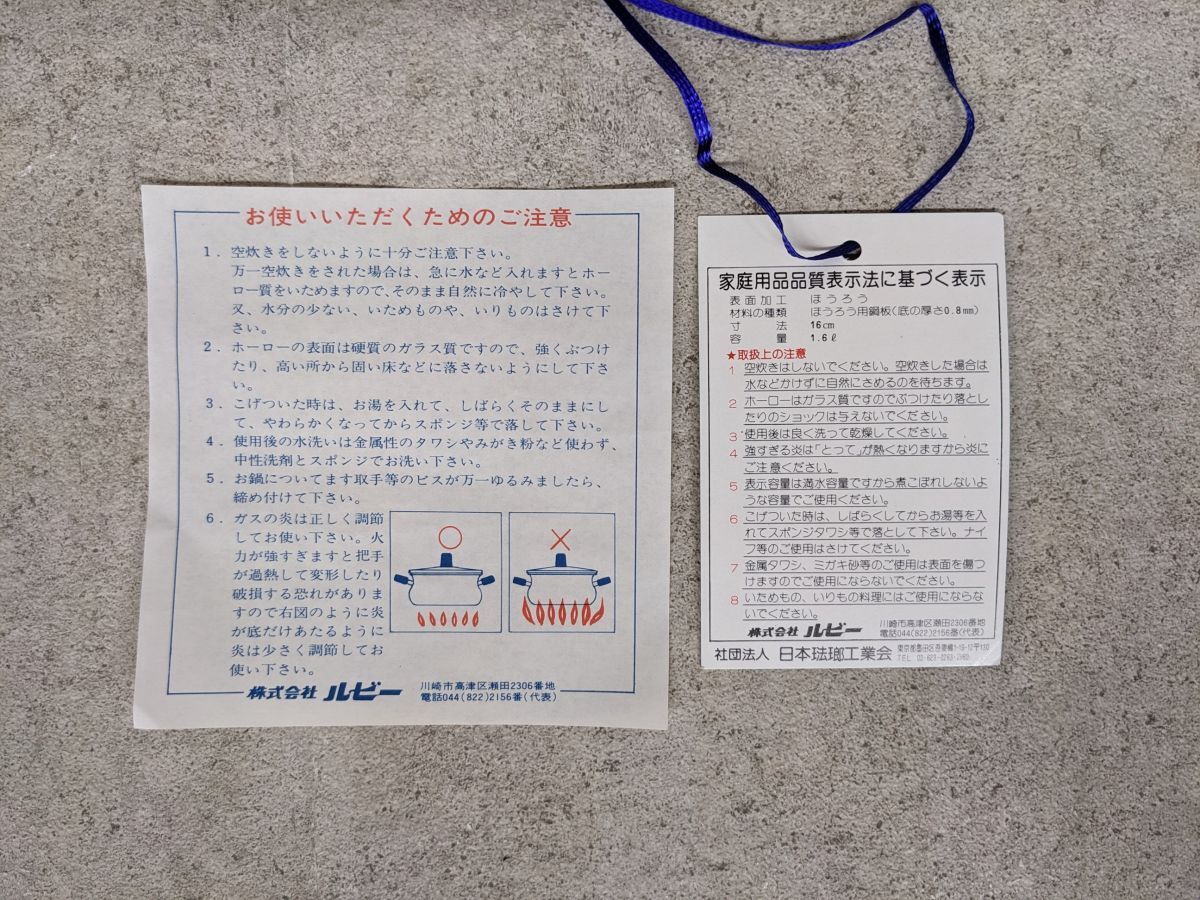 お使いいただくためのご注意
1. 空炊きをしないように十分ご注意下さい。
万一空炊きをされた場合は、急に水など入れますとホー
ロー質をいためますので、そのまま自然に冷やして下さい。
又、水分の少ない、いためものや、いりものはさけて下
さい。
2. ホーローの表面は硬質のガラス質ですので、強くぶつけ
たり、高い所から固い床などに落さないようにして下さ
い。
3. こげついた時は、お湯を入れて、しばらくそのままにし
て、やわらかくなってからスポンジ等で落して下さい。
4. 使用後の水洗いは金属性のタワシやみがき粉など使わず、
中性洗剤とスポンジでお洗い下さい。
5. お鍋についてます取手等のビスが万一ゆるみましたら、
締め付けて下さい。
6. ガスの炎は正しく調節
してお使い下さい。火
力が強すぎますと把手
が過熱して変形したり
破損する恐れがありま
すので右図のように炎
が底だけあたるように
炎は少さく調節してお
使い下さい。
株式会社 ルビー 川崎市高津区瀬田2306番地
電話044(822)2156番(代表)
家庭用品品質表示法に基づく表示
表面加工 ほうろう
材料の種類 ほうろう用鋼板(底の厚さ0.8mm)
寸法 16cm
容量 1.6ℓ
★取扱上の注意
1 空炊きはしないでください。空炊きした場合は
水などかけずに自然にさめるのを待ちます。
2 ホーローはガラス質ですのでぶつけたり落とし
たりのショックは与えないでください。
3 使用後は良く洗って乾燥してください。
4 強すぎる炎は「とって」が熱くなりますから炎に
ご注意ください。
5 表示容量は満水容量ですから煮こぼれしないよ
うな容量でご使用ください。
6 こげついた時は、しばらくしてからお湯等を入
れてスポンジタワシ等で落として下さい。ナイ
フ等のご使用はさけてください。
7 金属タワシ、ミガキ砂等のご使用は表面を傷つ
けますのでご使用にならないでください。
8 いためもの、いりもの料理にはご使用にならな
いでください。
株式会社 ルビー 川崎市高津区瀬田2306番地
電話044(822)2156番(代表)
社団法人 日本琺瑯工業会